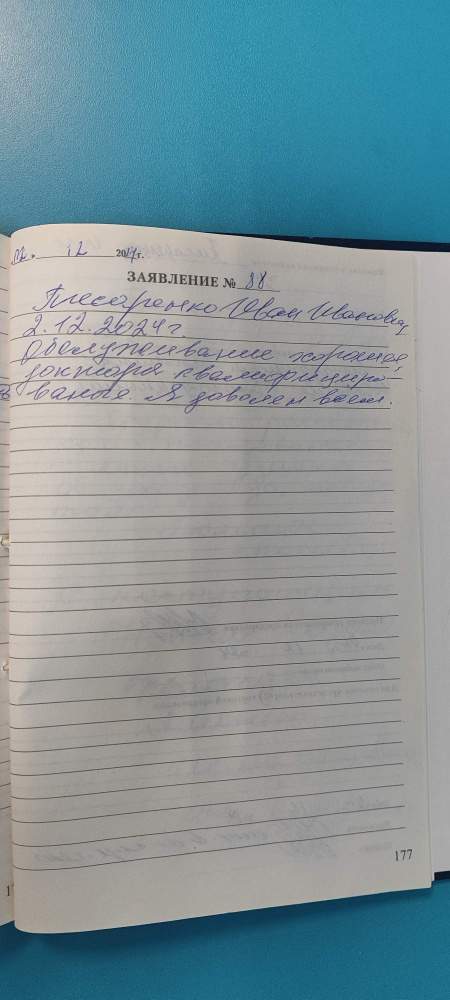 02 . 12 2024 г.
ЗАЯВЛЕНИЕ № 88
Писаренко Иван Иванович
2.12.2024 г
Обслуживание хорошее,
доктора квалифициро-
ванные. Я доволен всем.
177